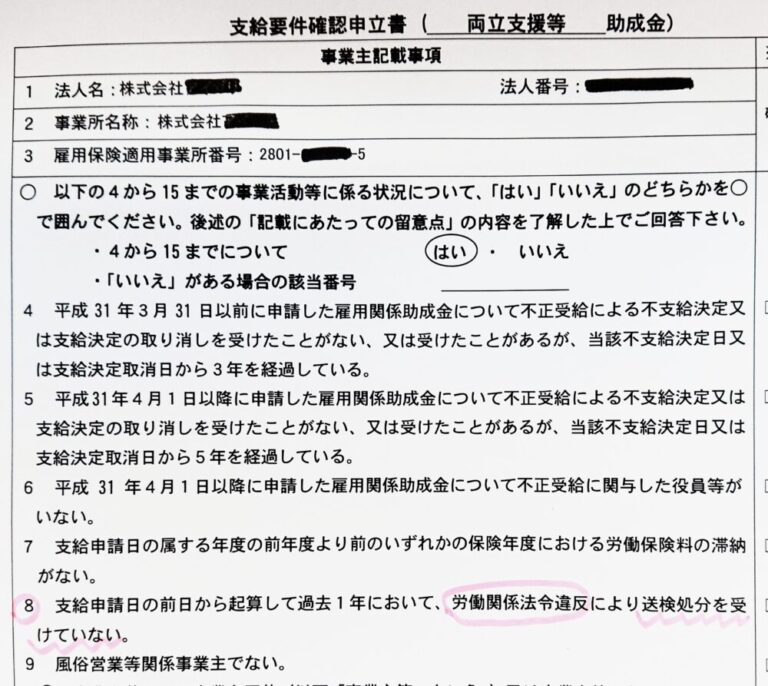 支給要件確認申立書（　両立支援等　助成金）
事業主記載事項
1　法人名：株式会社　法人番号：
2　事業所名称：株式会社
3　雇用保険適用事業所番号：2801-　-5
○　以下の4から15までの事業活動等に係る状況について、「はい」「いいえ」のどちらかを○
で囲んでください。後述の「記載にあたっての留意点」の内容を了解した上でご回答下さい。
・4から15までについて　はい　・　いいえ
・「いいえ」がある場合の該当番号
4　平成31年3月31日以前に申請した雇用関係助成金について不正受給による不支給決定又
は支給決定の取り消しを受けたことがない、又は受けたことがあるが、当該不支給決定日又
は支給決定取消日から3年を経過している。
5　平成31年4月1日以降に申請した雇用関係助成金について不正受給による不支給決定又は
支給決定の取り消しを受けたことがない、又は受けたことがあるが、当該不支給決定日又は
支給決定取消日から5年を経過している。
6　平成 31 年4月1日以降に申請した雇用関係助成金について不正受給に関与した役員等が
いない。
7　支給申請日の属する年度の前年度より前のいずれかの保険年度における労働保険料の滞納
がない。
8　支給申請日の前日から起算して過去1年において、労働関係法令違反により送検処分を受
けていない。
9　風俗営業等関係事業主でない。